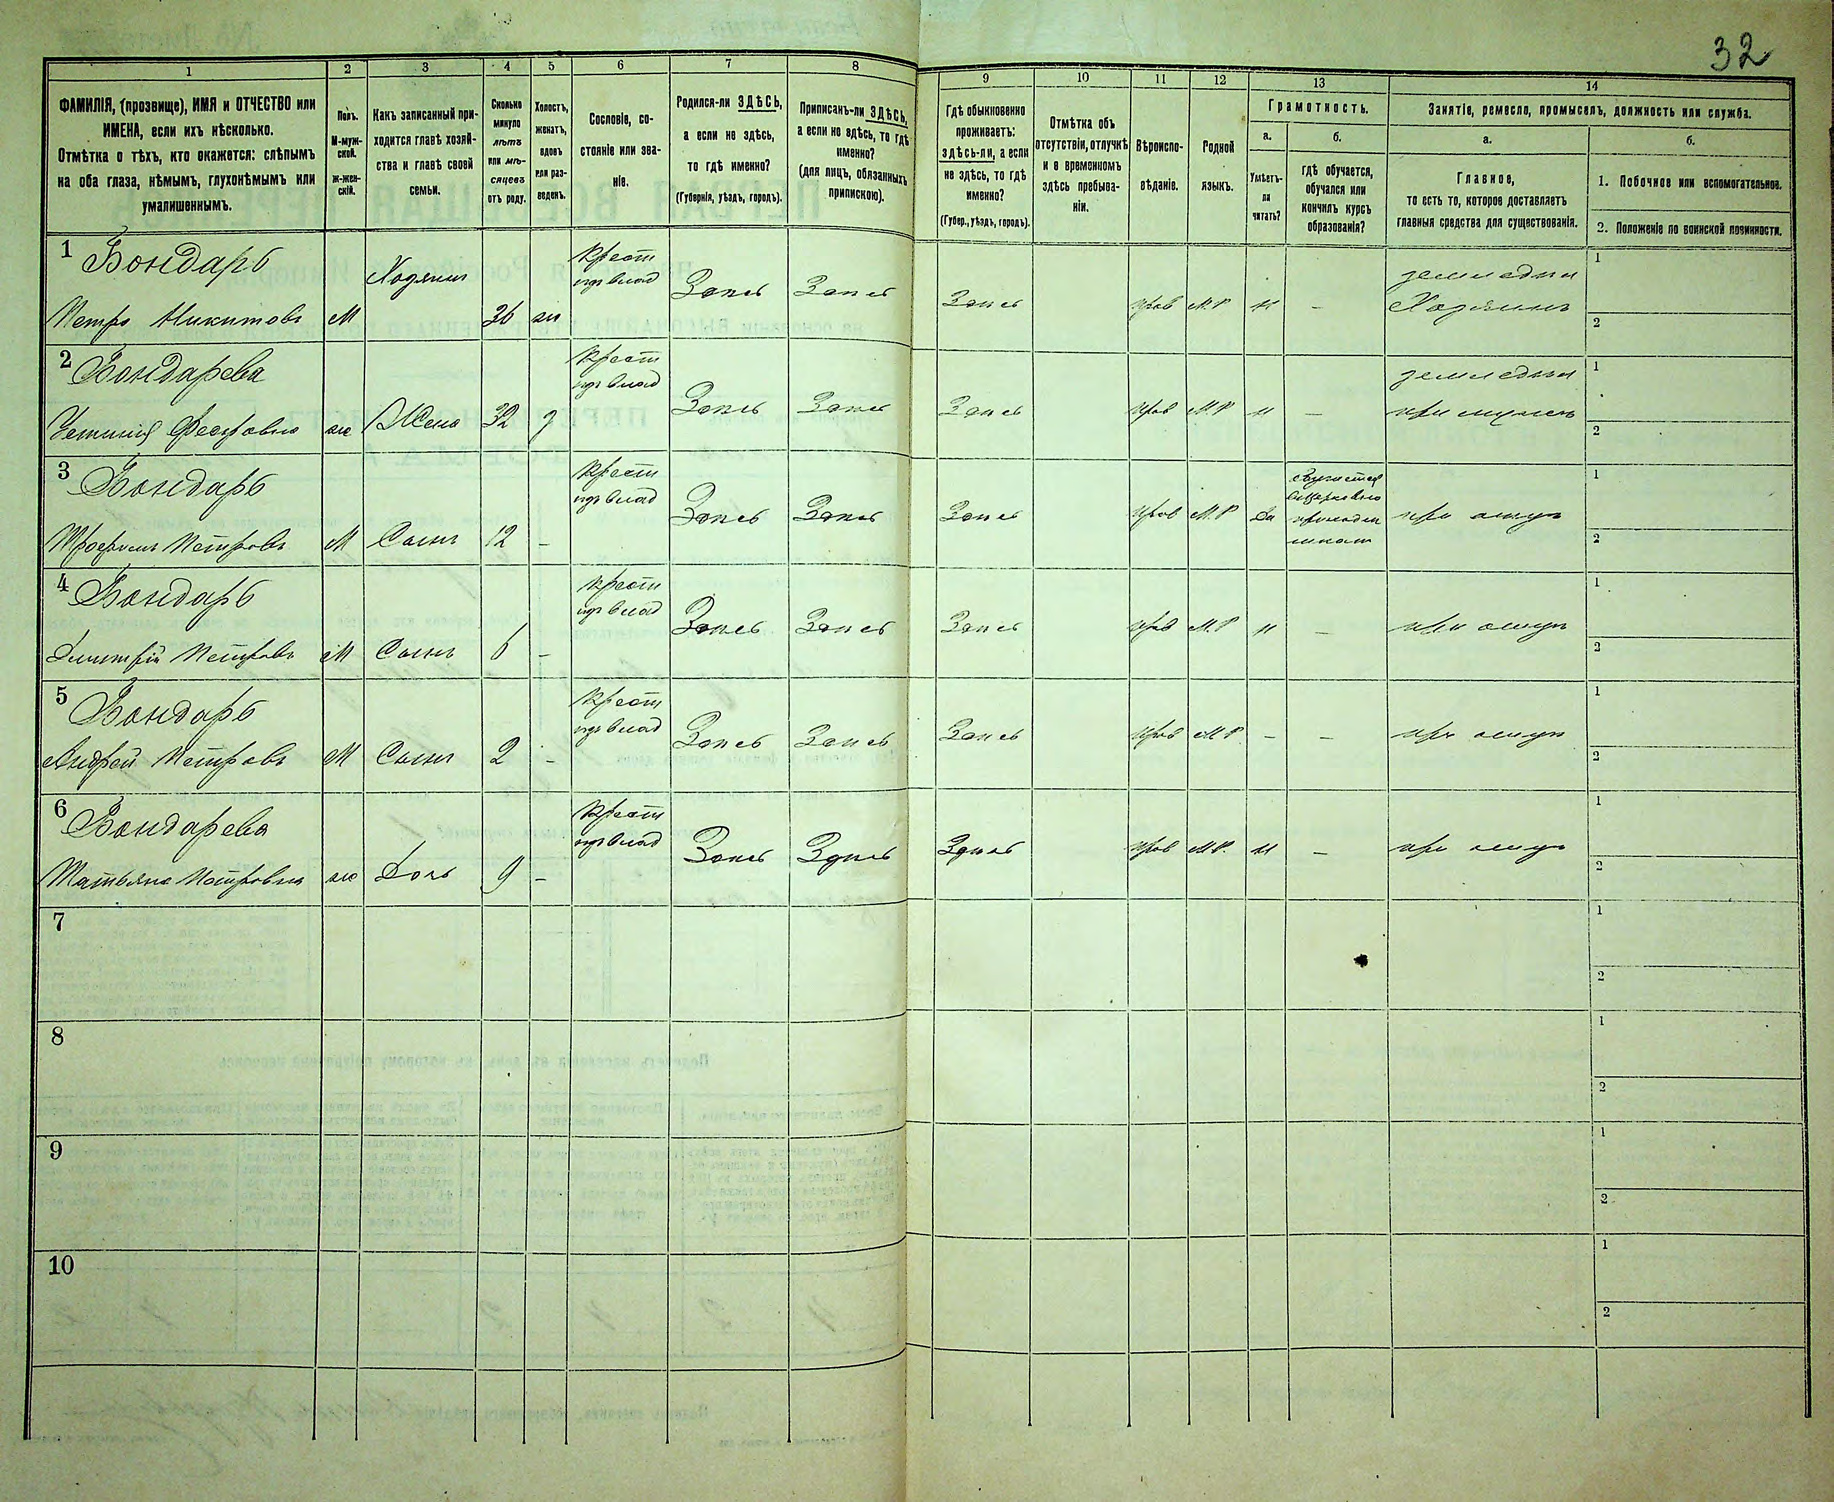 32
1 2 3 4 5 6 7 8 9 10 11 12 13 14
ФАМИЛІЯ, (прозвище), ИМЯ и ОТЧЕСТВО или
ИМЕНА, если ихъ нѣсколько.
Отмѣтка о тѣхъ, кто окажется: слѣпымъ
на оба глаза, нѣмымъ, глухонѣмымъ или
умалишеннымъ.
Полъ.
М-муж-
ской.
ж-жен-
скій.
Какъ записанный при-
ходится главѣ хозяй-
ства и главѣ своей
семьи.
Сколько
минуло
лѣтъ
или мѣ-
сяцевъ
отъ роду.
Холостъ,
женатъ,
вдовъ
или раз-
веденъ.
Сословіе, со-
стояніе или зва-
ніе.
Родился-ли ЗДѢСЬ,
а если не здѣсь,
то гдѣ именно?
(Губернія, уѣздъ, городъ).
Приписанъ-ли ЗДѢСЬ,
а если не здѣсь, то гдѣ
именно?
(для лицъ, обязанныхъ
припискою).
Гдѣ обыкновенно
проживаетъ:
здѣсь-ли, а если
не здѣсь, то гдѣ
именно?
(Губер., уѣздъ, городъ).
Отмѣтка объ
отсутствіи, отлучкѣ
и о временномъ
здѣсь пребыва-
ніи.
Вѣроиспо-
вѣданіе.
Родной
языкъ.
Грамотность.
а.
Умѣетъ-
ли
читать?
б.
гдѣ обучается,
обучался или
кончилъ курсъ
образованія?
Занятіе, ремесло, промыселъ, должность или служба.
а.
Главное,
то есть то, которое доставляетъ
главныя средства для существованія.
б.
1. Побочное или вспомогательное.
2. Положеніе по воинской повинности.
1 Бондарь
Петро Никитовъ М Хозяинъ 36 жи Крест
изъ влад Здесь Здесь Здесь Прав М.Р. н – земледели
Хозяинъ 1
2
2 Бондарева
Устинія Федоровна ж Жена 32 Крест
изъ влад Здесь Здесь Здесь Прав М.Р. н – земледели
при мужен 1
2
3 Бондарь
Трофим Петровъ М Сынъ 12 – Крест
изъ влад Здесь Здесь Здесь Прав М.Р. Да при отцу 1
2
4 Бондарь
Дмитрій Петровъ М Сынъ 6 – Крест
изъ влад Здесь Здесь Здесь Прав М.Р. н – при отцу 1
2
5 Бондарь
Андрей Петровъ М Сынъ 2 – Крест
изъ влад Здесь Здесь Здесь Прав М.Р. – – при отцу 1
2
6 Бондарева
Татьяна Петровна ж Дочь 9 – Крест
изъ влад Здесь Здесь Здесь Прав М.Р. н – при отцу 1
2
7 1
2
8 1
2
9 1
2
10 1
2